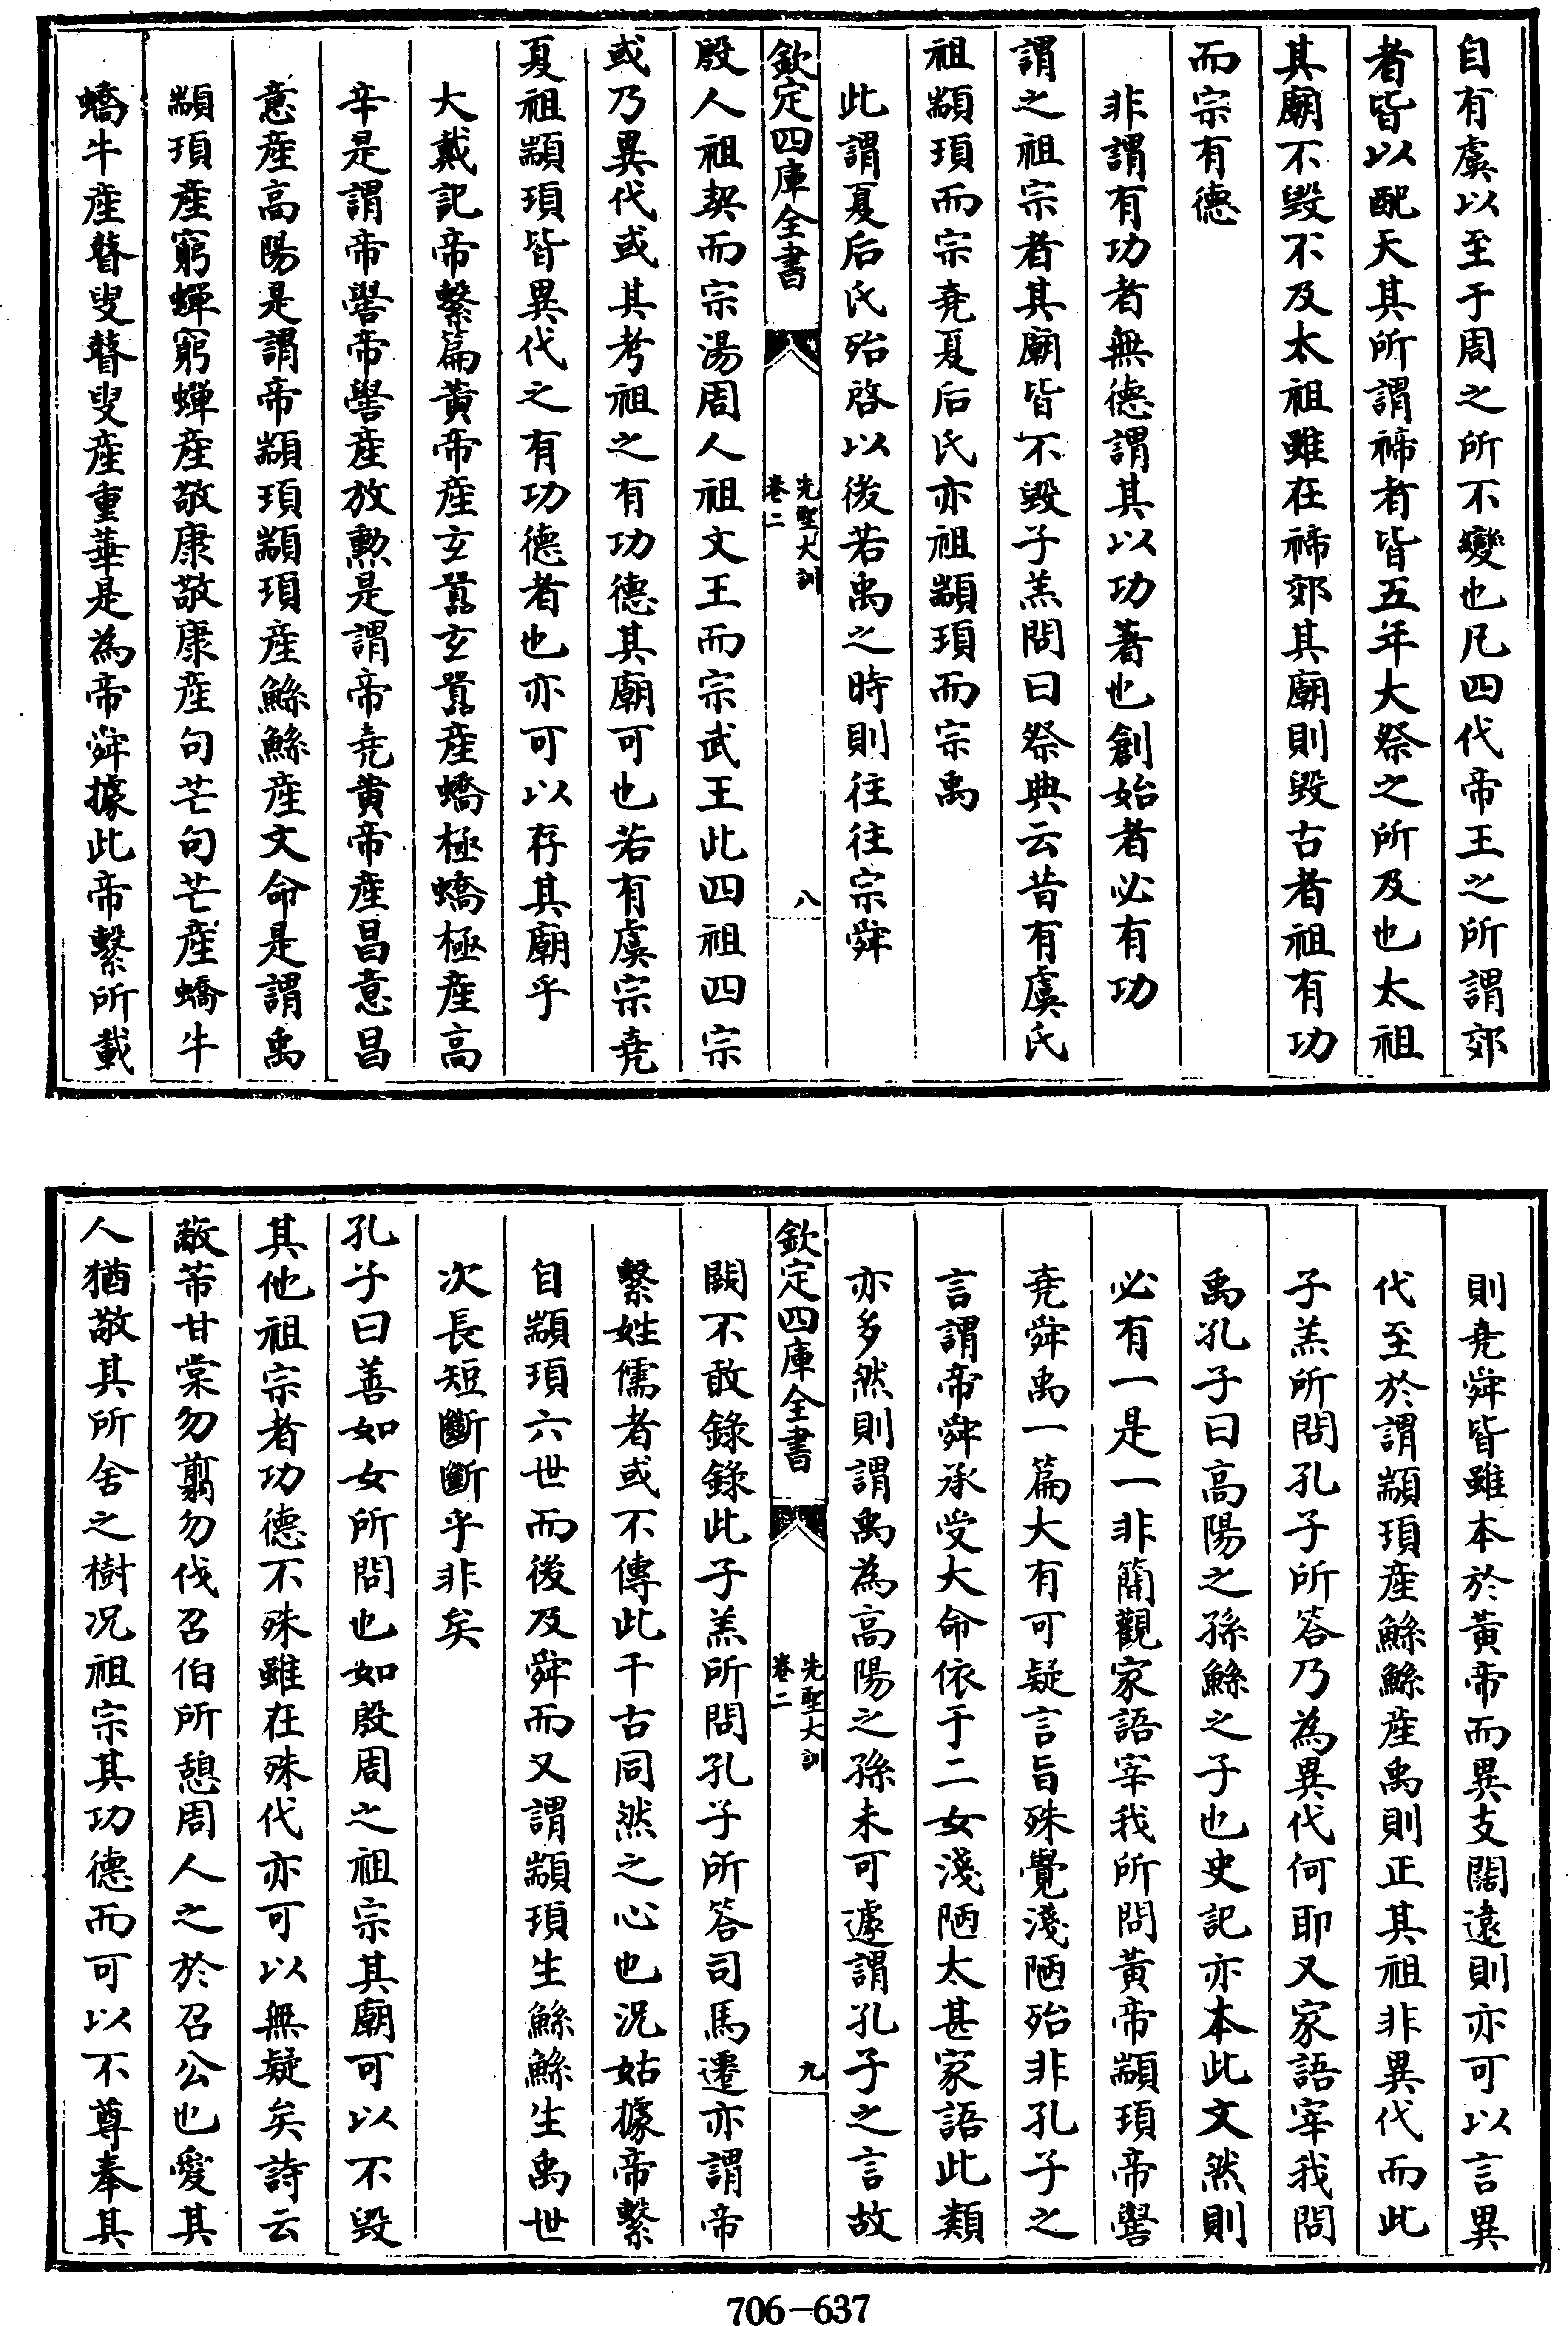 自有虞以至于周之所不變也凡四代帝王之所謂郊
者皆以配天其所謂禘者皆五年大祭之所及也太祖
其廟不毀不及太祖雖在禘郊其廟則毀古者祖有功
而宗有德
非謂有功者無德謂其以功著也創始者必有功
謂之祖宗者其廟皆不毀子羔問曰祭典云昔有虞氏
祖顓頊而宗堯夏后氏亦祖顓頊而宗禹
此謂夏后氏殆啓以後若禹之時則往往宗舜
欽定四庫全書
先聖大訓
卷二
八
殷人祖契而宗湯周人祖文王而宗武王此四祖四宗
或乃異代或其考祖之有功德其廟可也若有虞宗堯
夏祖顓頊皆異代之有功德者也亦可以存其廟乎
大戴記帝繫篇黃帝産玄囂玄囂産蟜極蟜極産高
辛是謂帝嚳帝嚳産放勲是謂帝堯黃帝産昌意昌
意産高陽是謂帝顓頊顓頊産鯀鯀産文命是謂禹
顓頊産窮蟬窮蟬産敬康敬康産句芒句芒産蟜牛
蟜牛産瞽叟瞽叟産重華是為帝舜據此帝繫所載
則堯舜皆雖本於黃帝而異支闊遠則亦可以言異
代至於謂顓頊産鯀鯀産禹則正其祖非異代而此
子羔所問孔子所答乃為異代何耶又家語宰我問
禹孔子曰高陽之孫鯀之子也史記亦本此文然則
必有一是一非簡觀家語宰我所問黃帝顓頊帝嚳
堯舜禹一篇大有可疑言旨殊覺淺陋殆非孔子之
言謂帝舜承受大命依于二女淺陋太甚家語此類
亦多然則謂禹為高陽之孫未可遽謂孔子之言故
欽定四庫全書
先聖大訓
卷二
九
闕不敢錄錄此子羔所問孔子所答司馬遷亦謂帝
繫姓儒者或不傳此千古同然之心也況姑據帝繫
自顓頊六世而後及舜而又謂顓頊生鯀鯀生禹世
次長短斷斷乎非矣
孔子曰善如女所問也如殷周之祖宗其廟可以不毀
其他祖宗者功德不殊雖在殊代亦可以無疑矣詩云
蔽芾甘棠勿翦勿伐召伯所憩周人之於召公也愛其
人猶敬其所舍之樹况祖宗其功德而可以不尊奉其
706-637